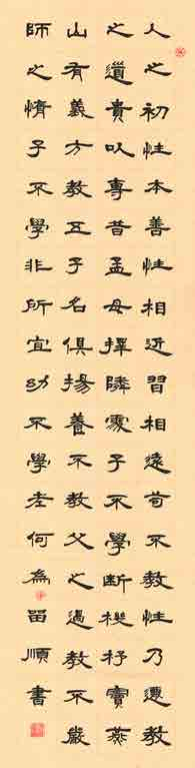 人之初性本善性相近習相遠苟不教性乃遷教
之道貴以專昔孟母擇隣處子不學斷機杼竇燕
山有義方教五子名俱揚養不教父之過教不嚴
師之惰子不學非所宜幼不學老何為留順書